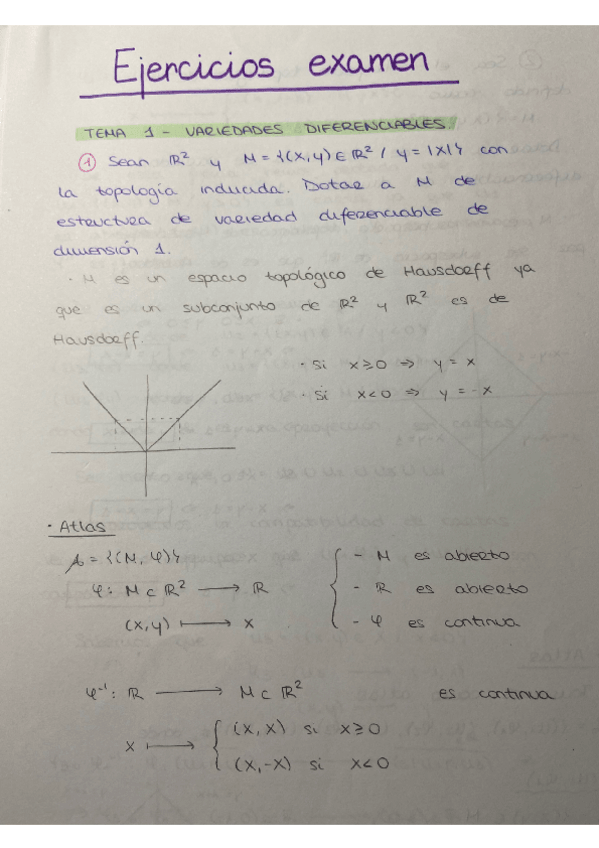 Ejercicios examen
TEMA 1 - VARIEDADES DIFERENCIABLES
① Sean ℝ² y M = {(x,y) ∈ ℝ² / y = |x|} con
la topología inducida. Dotar a M de
estructura de variedad diferenciable de
dimensión 1.
· M es un espacio topológico de Hausdorff ya
que es un subconjunto de ℝ² y ℝ² es de
Hausdorff.
· si x ≥ 0 ⇒ y = x
· si x < 0 ⇒ y = -x
· Atlas
A = {(M, φ)}
- M es abierto
φ: M ⊂ ℝ² ⟶ ℝ
- ℝ es abierto
(x,y) ⟼ x
- φ es continua
φ⁻¹: ℝ ⟶ M ⊂ ℝ² es continua
x ⟼ { (x,x) si x ≥ 0
(x,-x) si x < 0